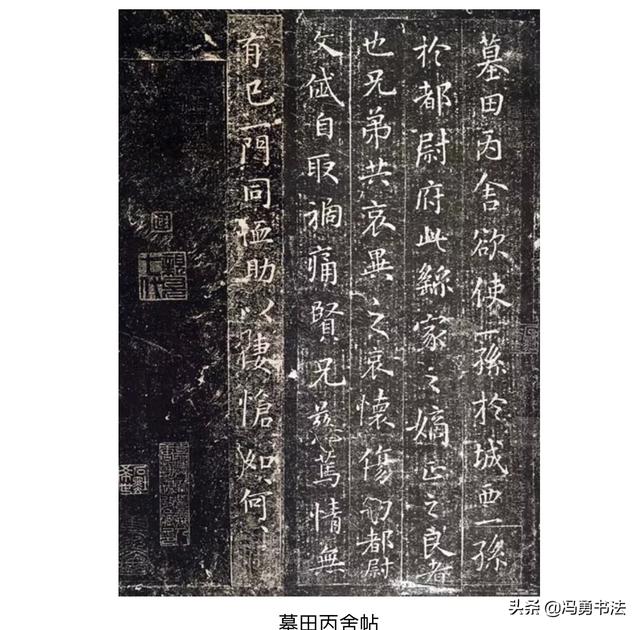 墓田丙舍欲使一孫於城西一孫
於都尉府此繇家之嫡正之良者
也兄弟共哀異之哀懷傷切都尉
文岱自取禍痛賢兄慈篤情無
有已一門同恤助以悽愴如何〻
头条 @冯勇书法
墓田丙舍帖